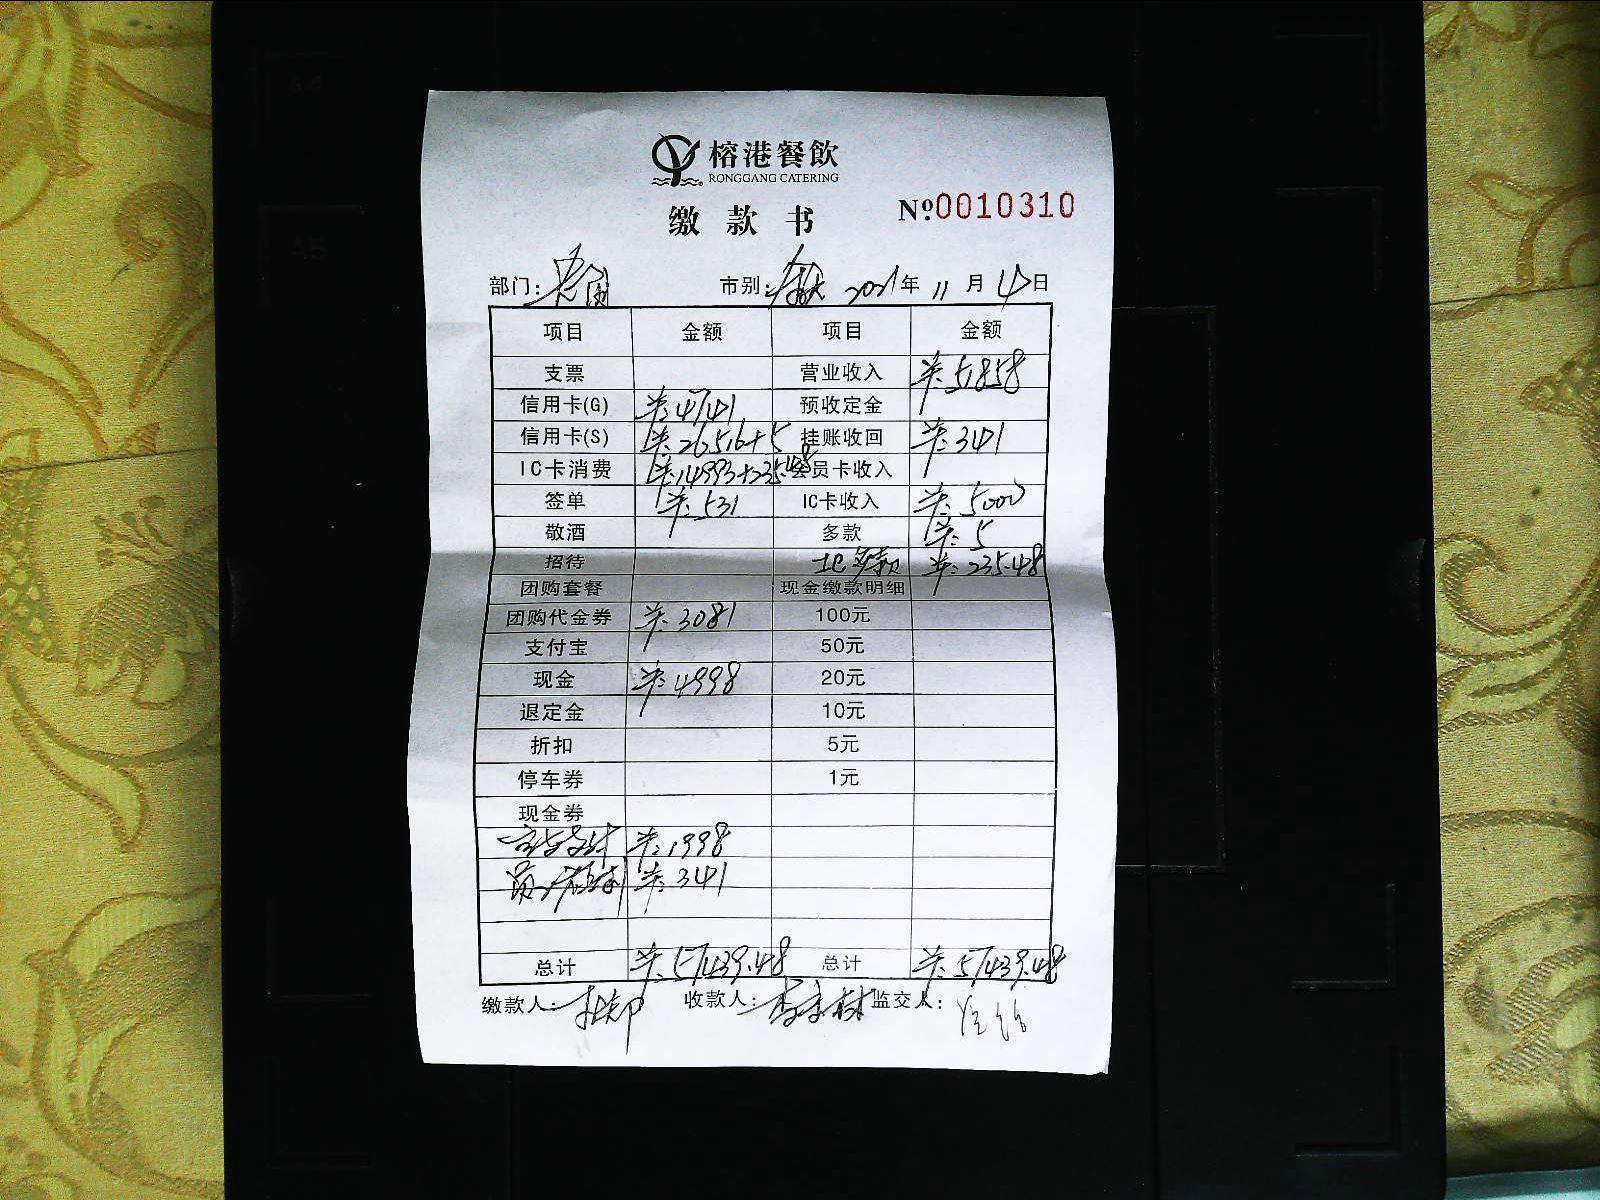 榕港餐飲
RONGGANG CATERING
缴款书
№0010310
部门: 市别: 2021年11月4日
项目 金额 项目 金额
支票 营业收入 羊:51858
信用卡(G) 羊:4741 预收定金
信用卡(S) 羊:26516+5 挂账收回 羊:341
IC卡消费 羊:14993+235.48 会员卡收入
签单 羊:531 IC卡收入 羊:5000
敬酒 多款 羊:5
招待 多款 羊:235.48
团购套餐 现金缴款明细
团购代金券 羊:3081 100元
支付宝 50元
现金 羊:4998 20元
退定金 10元
折扣 5元
停车券 1元
现金券
羊:1998
羊:341
总计 羊:57439.48 总计 羊:57439.48
缴款人: 收款人: 监交人: